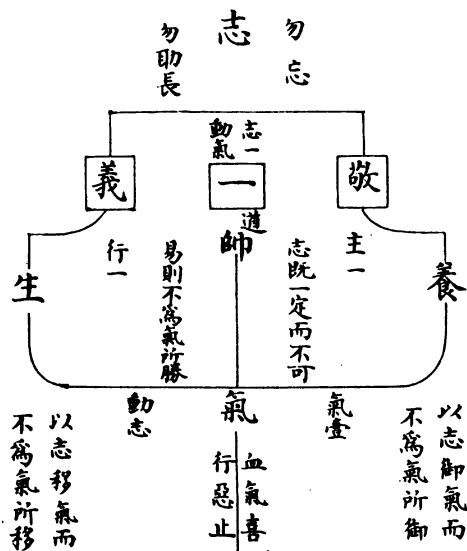 志
勿忘
勿助長
志一
動氣
敬
一
義
道
帥
主一
行一
養
生
志既一定而不可
易則不爲氣所勝
氣
氣壹
動志
以志御氣而
不爲氣所御
血氣喜
行惡止
以志移氣而
不爲氣所移